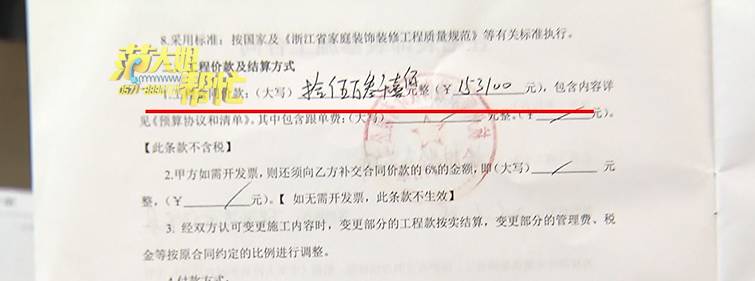 8.采用标准：按国家及《浙江省家庭装饰装修工程质量规范》等有关标准执行。
范大姐帮忙
程价款及结算方式
款：(大写) 拾伍万叁仟壹佰元整（￥153100元），包含内容详
见《预算协议和清单》。其中包含跟单费：(大写) 元整。（￥ 元）。
【此条款不含税】
2.甲方如需开发票，则还须向乙方补交合同价款的6%的金额，即(大写) 元
整，（￥ 元）。【 如无需开发票，此条款不生效】
3. 经双方认可变更施工内容时，变更部分的工程款按实结算，变更部分的管理费、税
金等按原合同约定的比例进行调整。
4.付款方式：